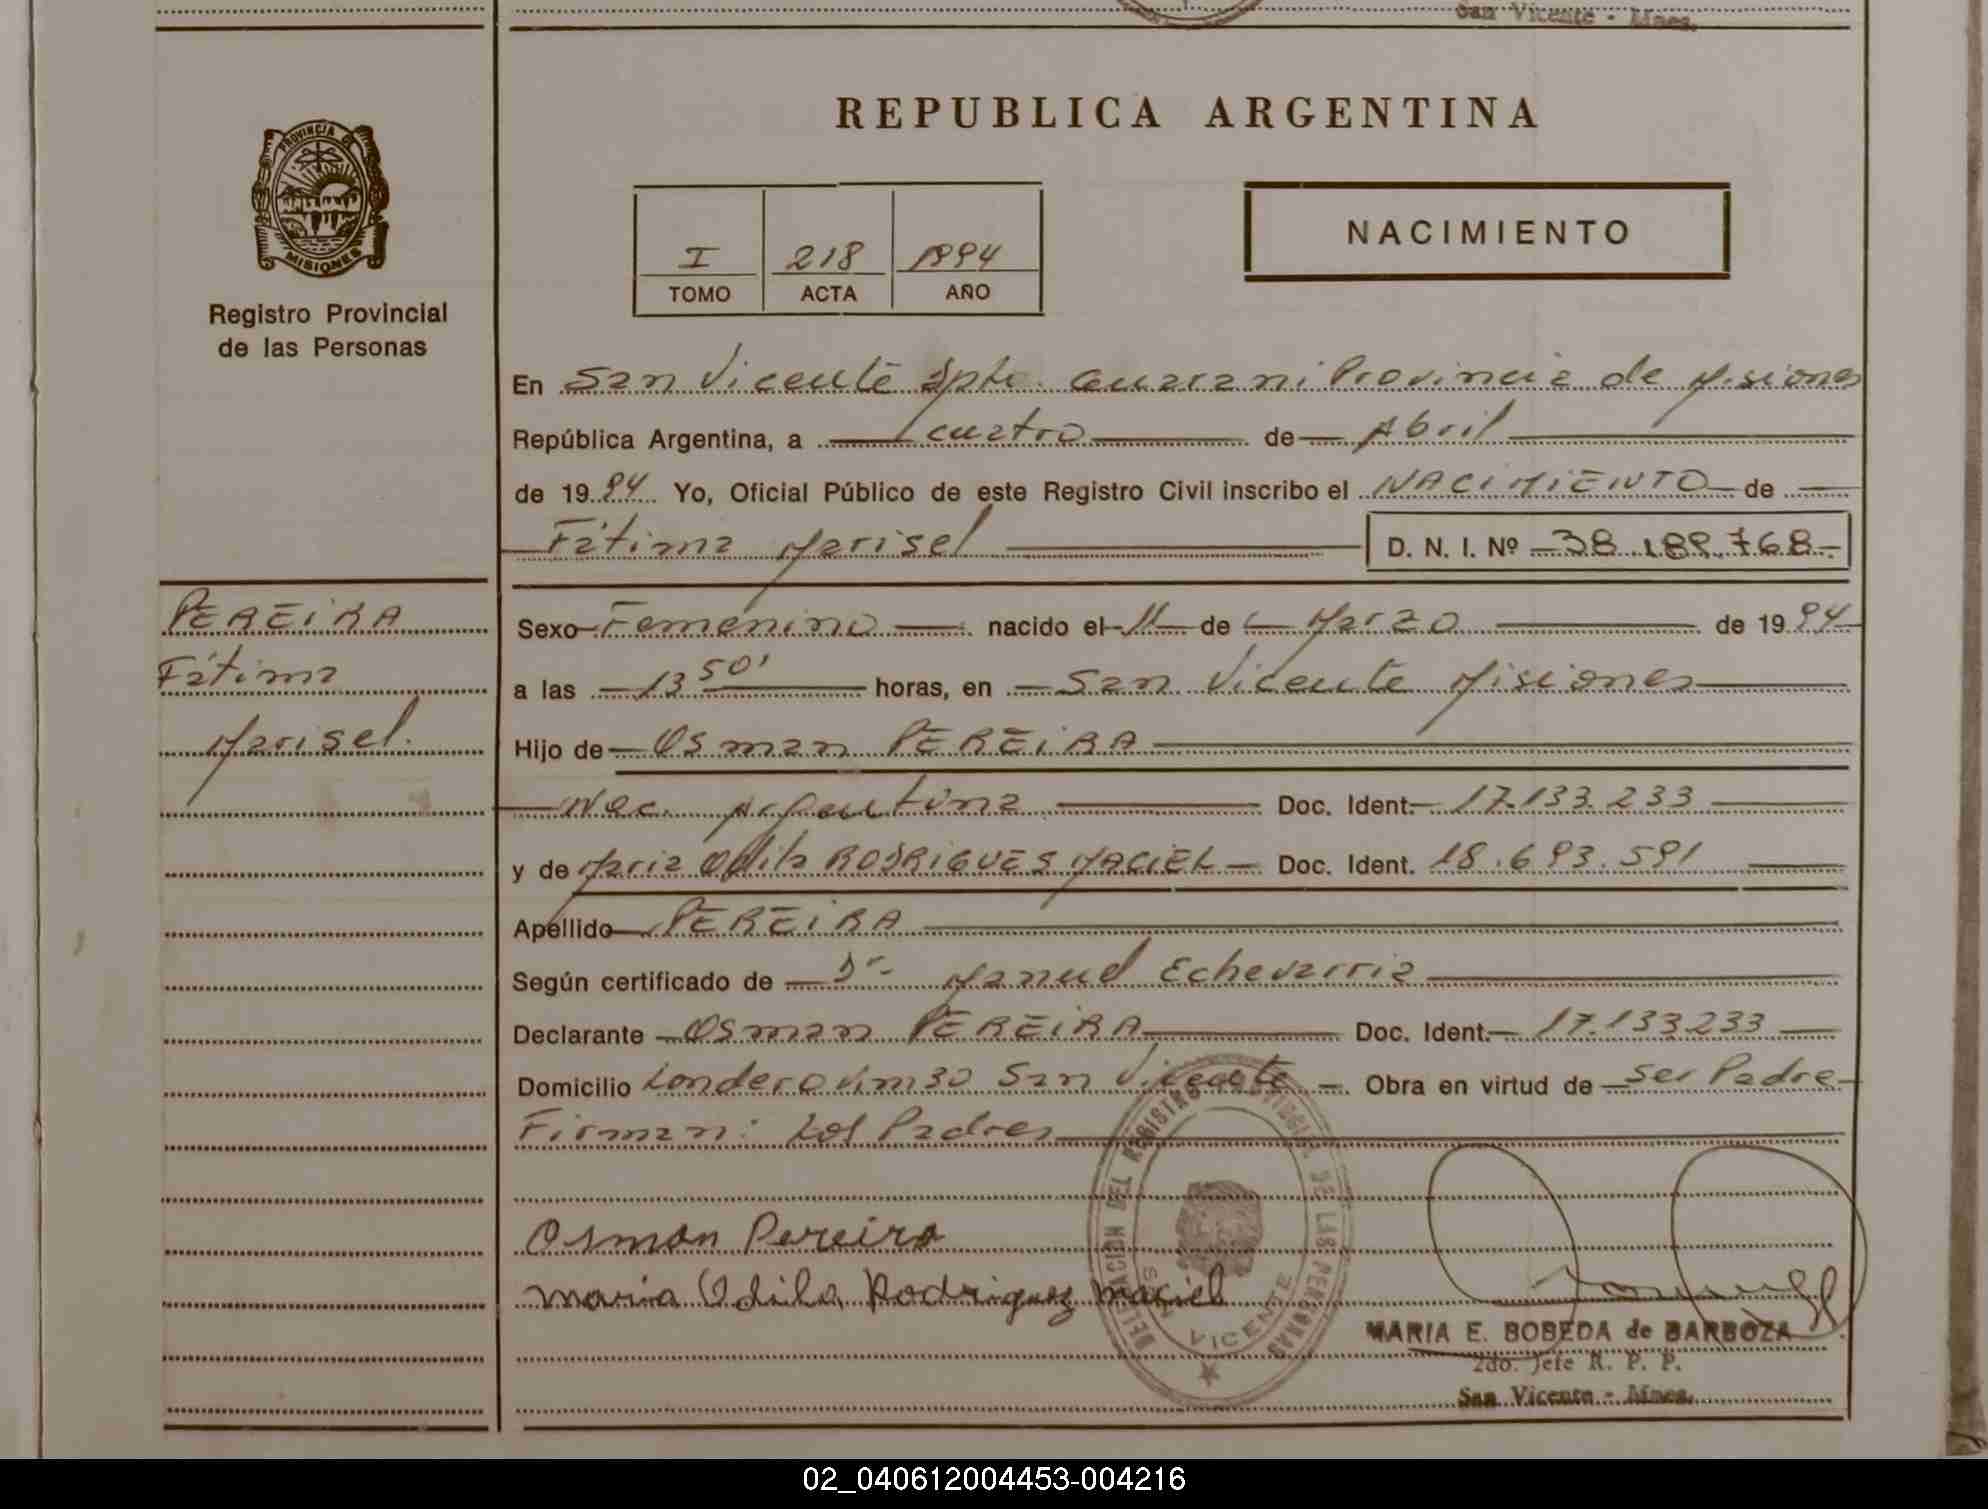 San Vicente - Mnes.
REPUBLICA ARGENTINA
PROVINCIA DE
MISIONES
Registro Provincial
de las Personas
I 218 1994
TOMO ACTA AÑO
NACIMIENTO
En San Vicente Dpto. Guarani Provincia de Misiones
República Argentina, a cuatro de Abril
de 1994 Yo, Oficial Público de este Registro Civil inscribo el NACIMIENTO de
Fátima Marisel D. N. I. Nº 38.189.768
PEREIRA
Fátima
Marisel.
Sexo Femenino nacido el 11 de Marzo de 1994
a las 13 50' horas, en San Vicente Misiones
Hijo de Osman PEREIRA
Nac. Argentina Doc. Ident. 17.133.233
y de Maria Odila RODRIGUES MACIEL Doc. Ident. 18.693.591
Apellido PEREIRA
Según certificado de Dr Manuel Echevarria
Declarante Osman PEREIRA Doc. Ident. 17.133.233
Domicilio San Vicente Obra en virtud de Ser Padre
Firman: Los Padres
Osman Pereira
Maria Odila Rodriguez Maciel
DELEGACION DEL REGISTRO PROVINCIAL DE LAS PERSONAS
SAN VICENTE
MARIA E. BOBEDA de BARBOZA
2do. Jefe R. P. P.
San Vicente - Mnes.
02_040612004453-004216